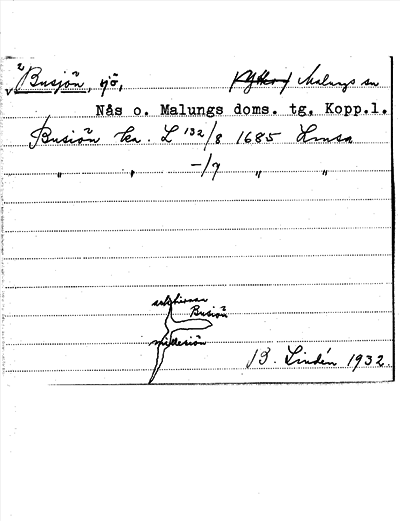 2 Busjön, sjö, Malungs sn
Nås o. Malungs doms. tg. Kopp.l.
Busiön ka. L 132/8 1685 Lmsa
" " -/7 " "
Busiön
B. Lindén 1932.